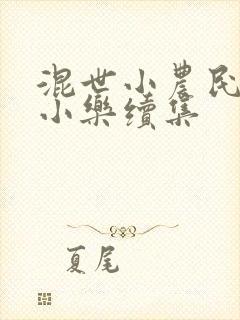 混世小農民
小樂續集
夏尾